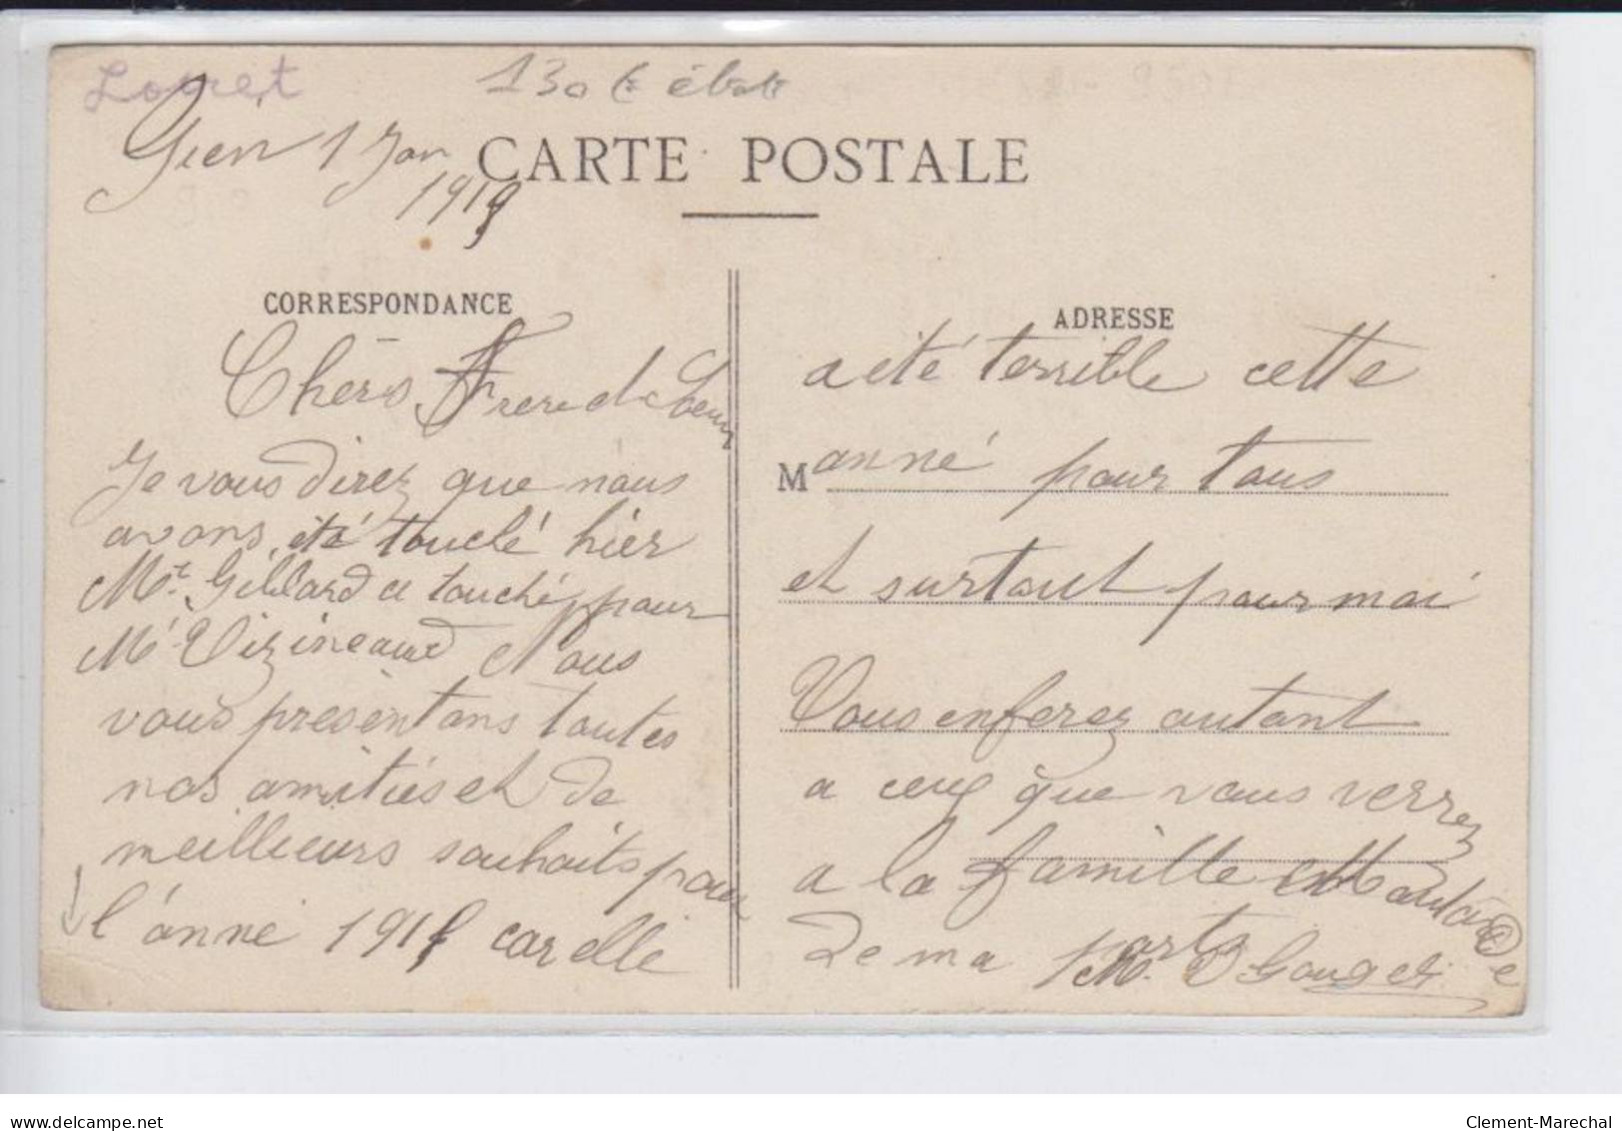 Loiret
130 €
Gien 1 Jan
1919
CARTE POSTALE
CORRESPONDANCE
Chers Frere et Soeur
Je vous direz que nous
avons été touché hier
Mr. Gillard a touché pour
Mr Vizineaud Nous
vous présentons toutes
nos amitiés et de
meillieurs souhaits pour
l'anné 191 car elle
ADRESSE
a été terrible cette
M anné pour tous
et surtout pour moi
Vous enferez autant
a ceux que vous verrez
a la famille
de ma part
Mr. Gouget
delcampe.net
Clement-Marechal